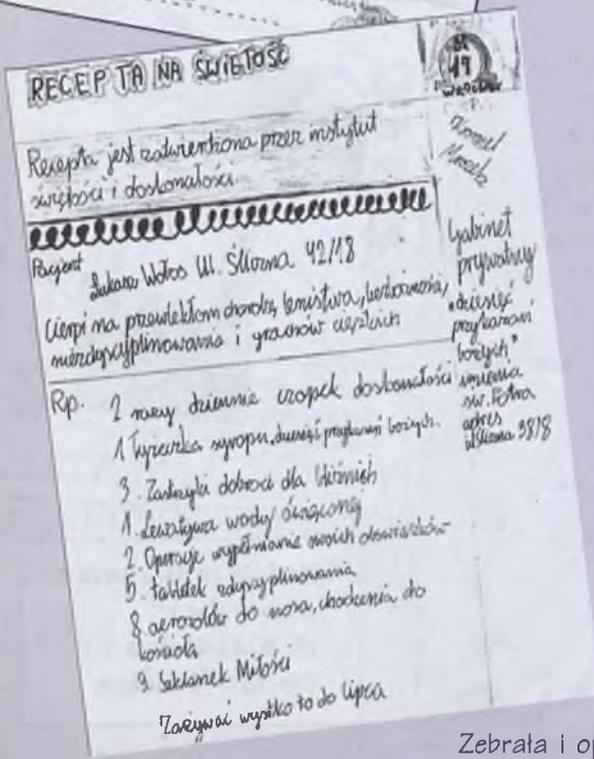 RECEPTA NA ŚWIĘTOŚĆ
Recepta jest zatwierdzona przez instytut
świętości i doskonałości
Pacjent
Łukasz Wołos Ul. Śliczna 42/18
Cierpi na przewlekłom chorobę lenistwa,
niezdyscyplinowania i grzechów ciężkich
Rp. 2 razy dziennie czopek doskonałości
1 łyżeczka syropu, dziesięć przykazań bożych.
3. Zastrzyki dobroci dla bliźnich
1. Lewatywa wody święconej
2. Operacje wypełnianie swoich obowiązków
5. tabletek zdyscyplinowania
8 aerozolów do nosa, chodzenia do
kościoła
9. Szklanek Miłości
Zażywać wszystko to do lipca
19
Wrocław
Gabinet
prywatny
"dziesięć
przykazań
bożych"
imienia
św. Piotra
adres
ul Śliczna 38/8
Zebrała i op